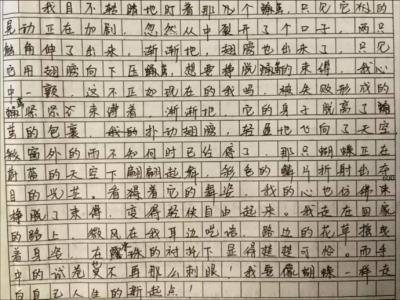 我目不转睛地盯着那几个蛹茧，只见它们的
晃动正在加剧，忽然从中裂开了个口子，两只
触角伸了出来，渐渐地，翅膀也出来了，只见
它用翅膀向下压蛹茧，想要挣脱蛹茧的束缚。我心
中一颤，这不正如现在的我吗，被失败形成的
蛹茧紧紧束缚着，渐渐地，它的身子脱离了蛹
茧的包裹，扑动翅膀，轻盈地飞向了天空
窗外的雨不知何时已经停了，那只蝴蝶正在
蔚蓝的天空下翩翩起舞，彩色的鳞片折射出夺
目的光芒。看着它的舞姿，我的心也仿佛
挣脱了束缚，变得轻快自由起来。我走在回家
的路上，微风在我耳边呢喃，路边的花草摇曳
着身姿，在露珠的衬托下显得楚楚可怜。而手
中的试卷竟不再那么刺眼！我要像蝴蝶一样走
向自己人生的新起点！